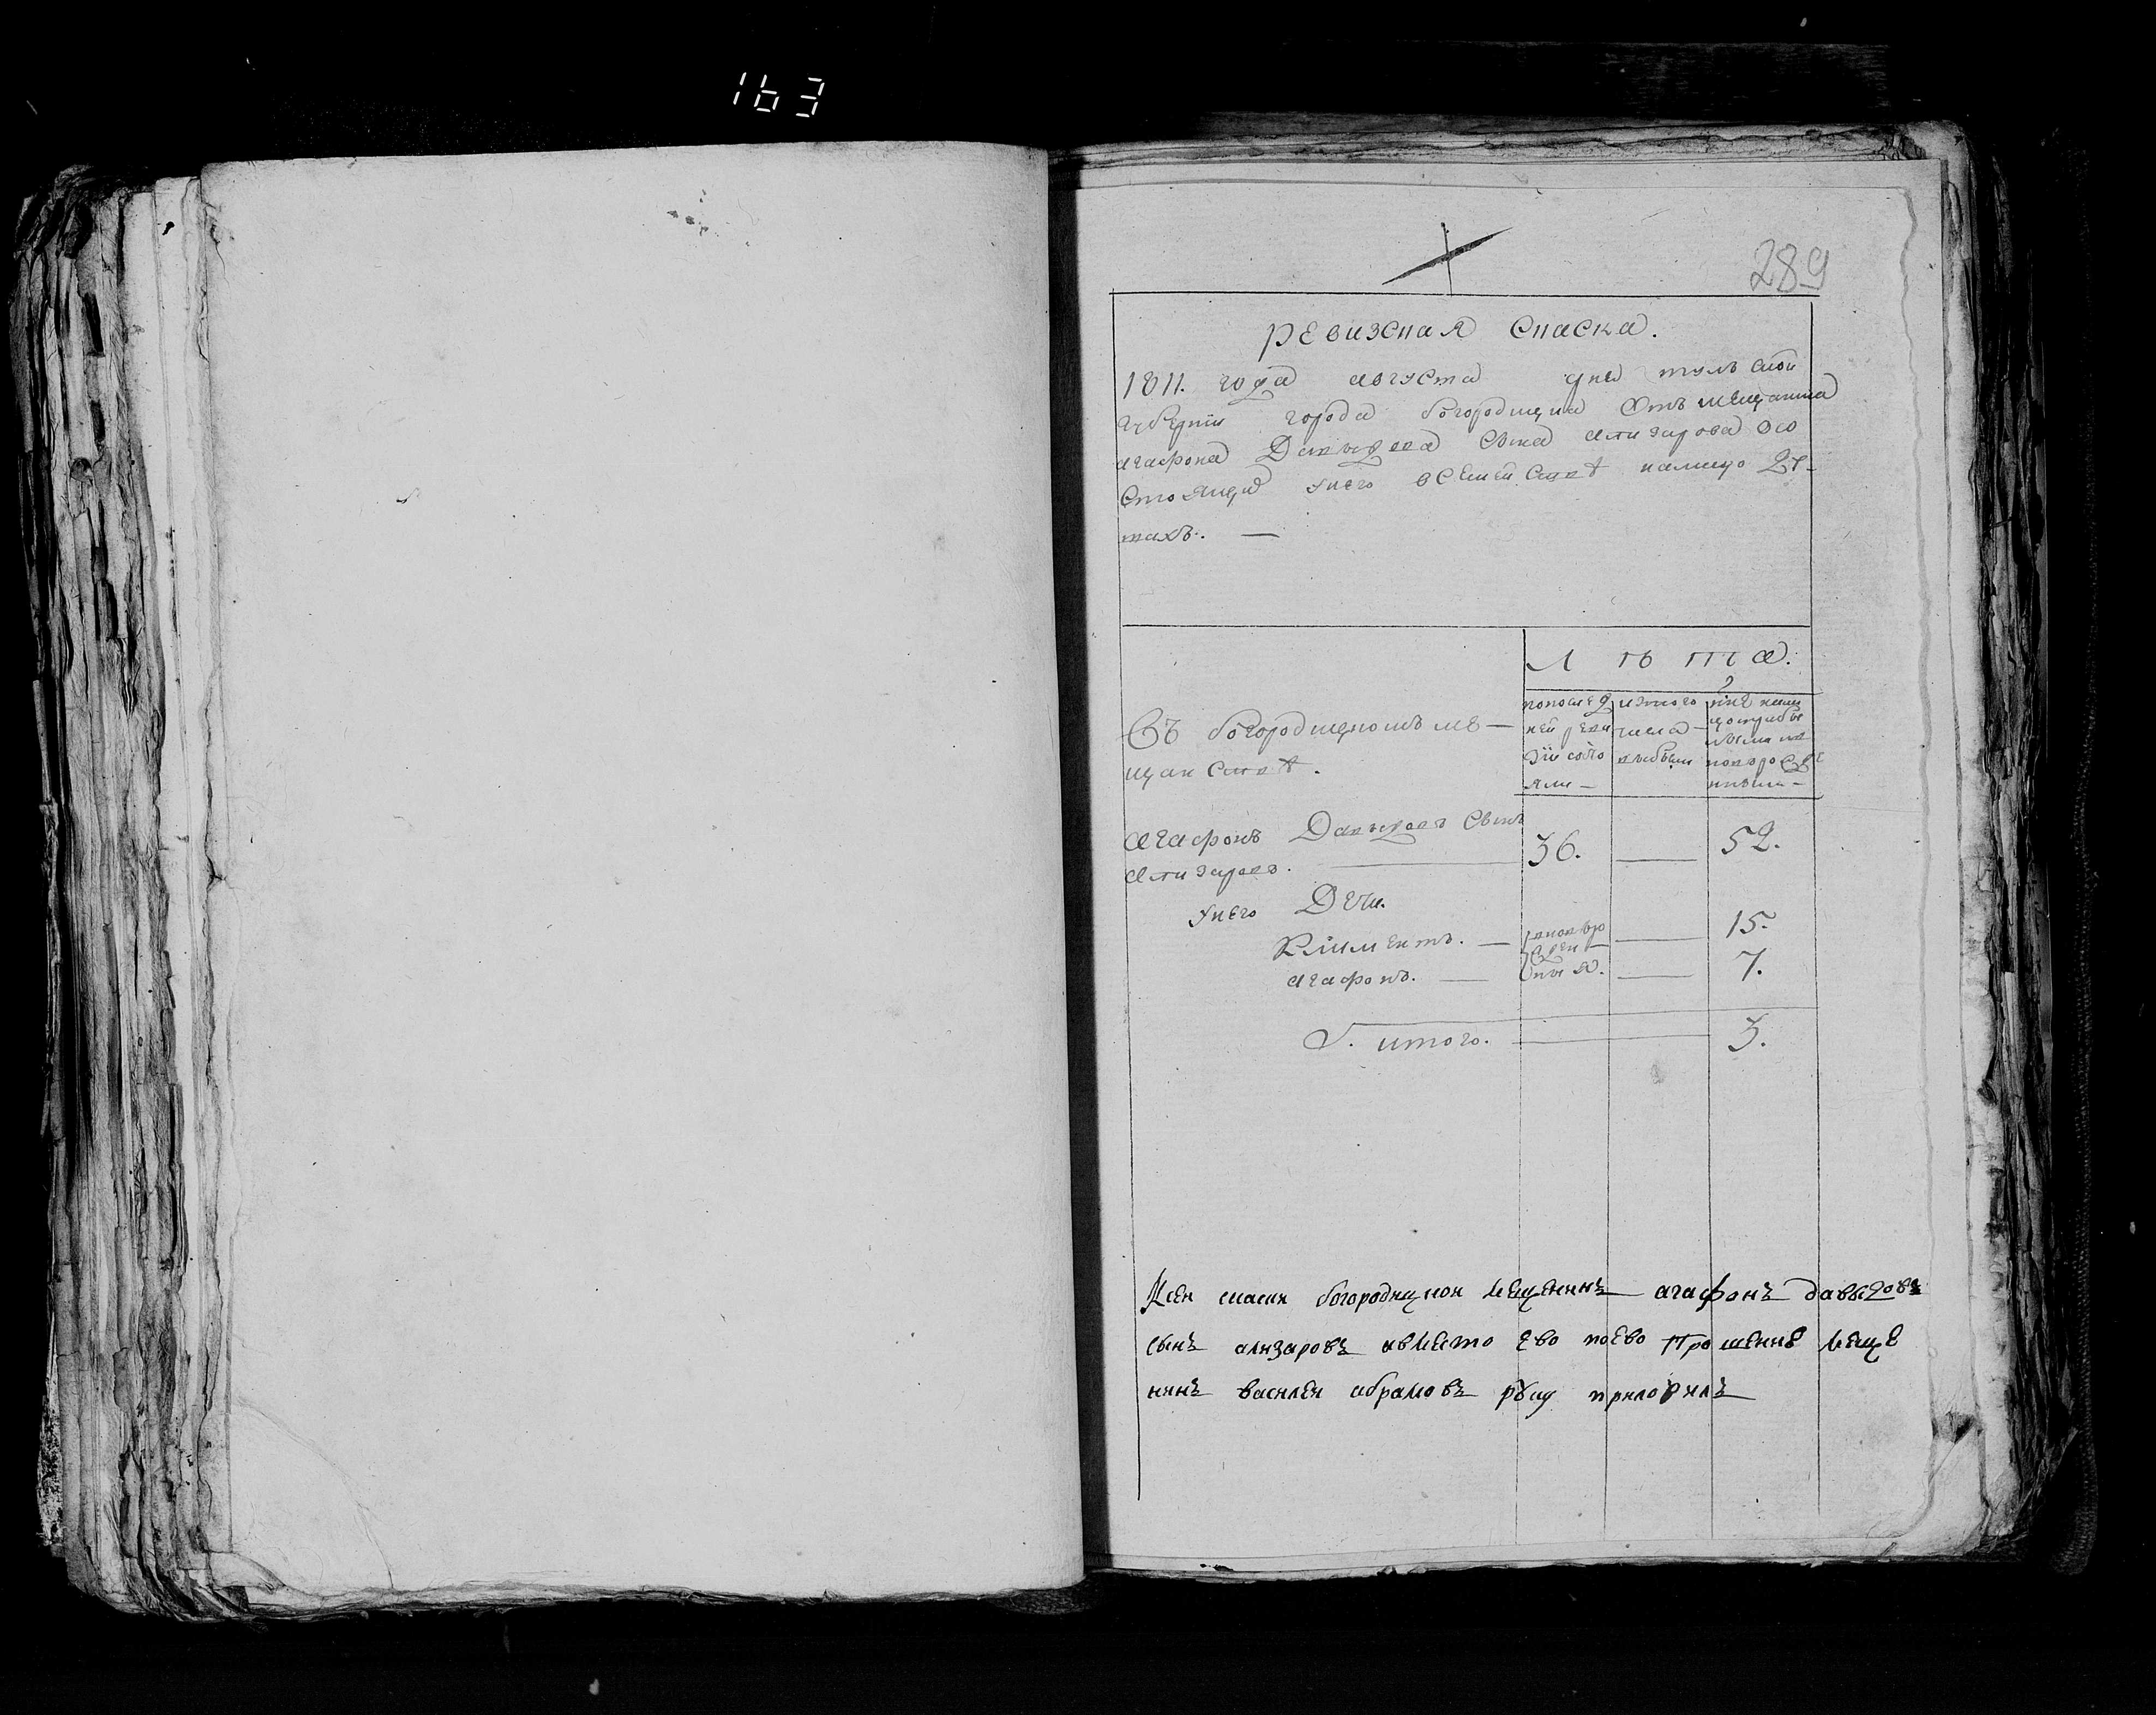 163
289
ревизская Скаска.
1811. года августа дня тульской
губернии города богородицка Отъ мещанина
агафона Давыдова Сына ализарова о со
Стоящих унего всемействе налицо де-
тахъ. —
Лѣта.
Въ богородицкомъ ме-
щанстве.
попослед
ней реви
зіи состо
яли —
изтого
числа
выбыли
Агафонъ Давыдовъ Сынъ
Ализаровъ. — 36. — 52.
унего Дети.
Климентъ. — — 15.
агафонъ. — — 7.
итого. — 3.
Ксей скаски богородицкои мещенинъ агафонъ давыдовъ
сынъ ализаровъ авместо ево поево прошению меще
нинъ василеи абрамовъ руку приложилъ